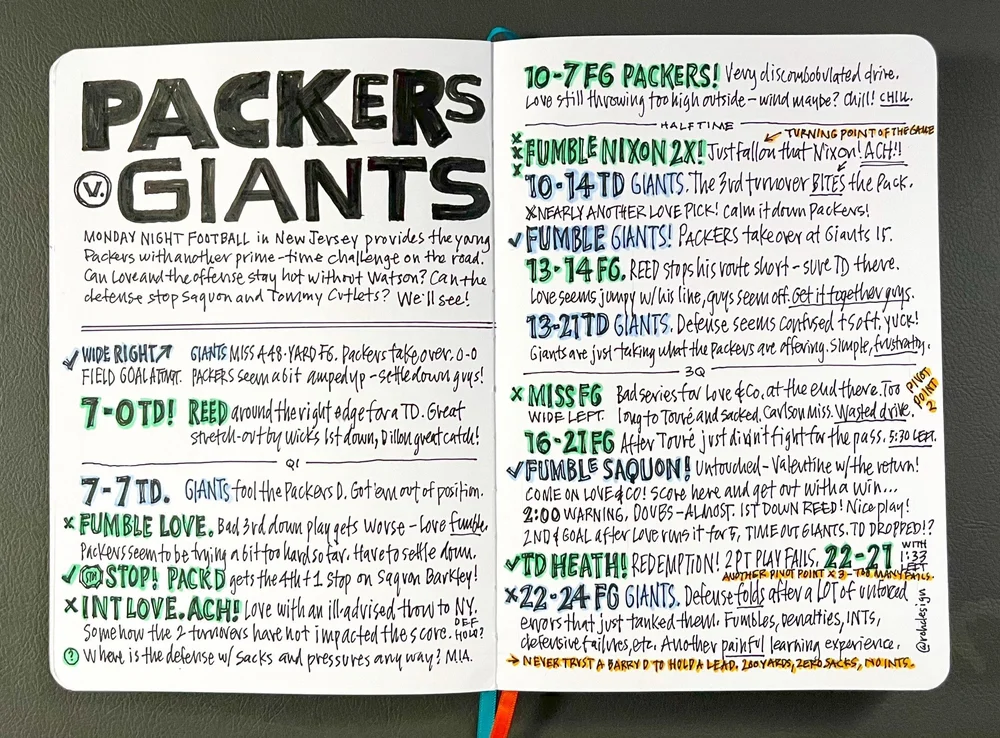 PACKERS
V. GIANTS
MONDAY NIGHT FOOTBALL in New Jersey provides the young
Packers with another prime-time challenge on the road.
Can Love and the offense stay hot without Watson? Can the
defense stop Saquon and Tommy Cutlets? We'll see!
✓ WIDE RIGHT↗ GIANTS MISS A 48-YARD FG. Packers take over, 0-0
FIELD GOAL ATTMT. PACKERS seem a bit amped up – settle down guys!
7-0 TD! REED around the right edge for a TD. Great
stretch-out by Wicks 1st down, Dillon great catch!
Q1
7-7 TD. GIANTS fool the Packers D. Got 'em out of position.
x FUMBLE LOVE. Bad 3rd down play gets worse – Love fumble.
Packers seem to be trying a bit too hard so far. Have to settle down.
✓ STOP! PACK D gets the 4th + 1 stop on Saquon Barkley!
x INT LOVE. ACH! Love with an ill-advised throw to NY.
Some how the 2 turnovers have not impacted the score. DEF HOLD?
? Where is the defense w/ sacks and pressures any way? MIA.
10-7 FG PACKERS! Very discombobulated drive.
Love still throwing too high outside – wind maybe? Chill! CHILL.
HALFTIME
← TURNING POINT OF THE GAME
x x x FUMBLE NIXON 2X! Just fall on that Nixon! ACH!!
10-14 TD GIANTS. The 3rd turnover BITES the Pack.
x NEARLY ANOTHER LOVE PICK! Calm it down Packers!
✓ FUMBLE GIANTS! PACKERS take over at Giants 15.
13-14 FG. REED stops his route short – sure TD there.
Love seems jumpy w/ his line, guys seem off. Get it together guys.
13-21 TD GIANTS. Defense seems confused + soft, YUCK!
Giants are just taking what the Packers are offering. Simple, frustrating.
3Q
x MISS FG Bad series for Love & Co, at the end there. Too
WIDE LEFT. long to Touré and sacked. Carlson miss. Wasted drive.
PIVOT POINT 2
16-21 FG After Touré just didn't fight for the pass. 5:30 LEFT.
✓ FUMBLE SAQUON! Untouched – Valentine w/ the return!
COME ON LOVE & CO! Score here and get out with a win...
2:00 WARNING, DOUBS – ALMOST. 1ST DOWN REED! Nice play!
2ND & GOAL after Love runs it for 5, TIME OUT GIANTS. TD DROPPED!?
✓ TD HEATH! REDEMPTION! 2 PT PLAY FAILS, 22-21 WITH 1:33 LEFT
ANOTHER PIVOT POINT x 3 – TOO MANY FAILS.
x 22-24 FG GIANTS. Defense folds after a LOT of unforced
errors that just tanked them. Fumbles, penalties, INTS,
defensive failures, etc. Another painful learning experience.
→ NEVER TRUST A BARRY D TO HOLD A LEAD. 200 YARDS, ZERO SACKS, NO INTS.
@rohdesign